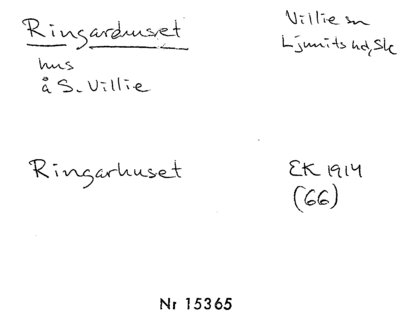 Ringarhuset
Villie sn
Ljunits hd, Sk
hus
å S. Villie
Ringarhuset
EK 1914
(66)
Nr 15365